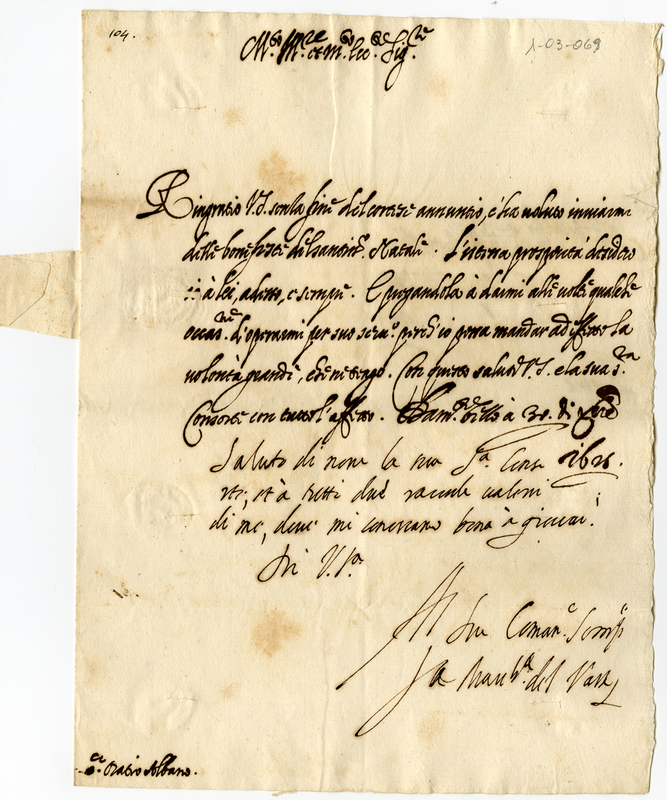 104.
1-03-069
M.to M.re et m. Ecc.te Sig.re
Ringratio V.S. senza fine del cortese annuncio, c'ha voluto inviarmi
delle bone feste del santiss.o Natale. L'istessa prosperità desidero
io à lei, adesso, e sempre. E pregandola à darmi alle volte qualche
occas.ne d'operarmi per suo ser.o perch'io possa mandar ad effetto la
volontà grande, che ne tengo. Con questo saluto V.S. e la sua s.ra
Consorte con tutto l'affetto. à 30 di Xbre
Saluto di novo la sua S.ra Conso 1621.
rte, et à tutti due
di me, dove mi conoscano bona à giovar.
Di V.S.
Al suo Coman.o
La March.a del Vasto
S.r Oratio Albano.